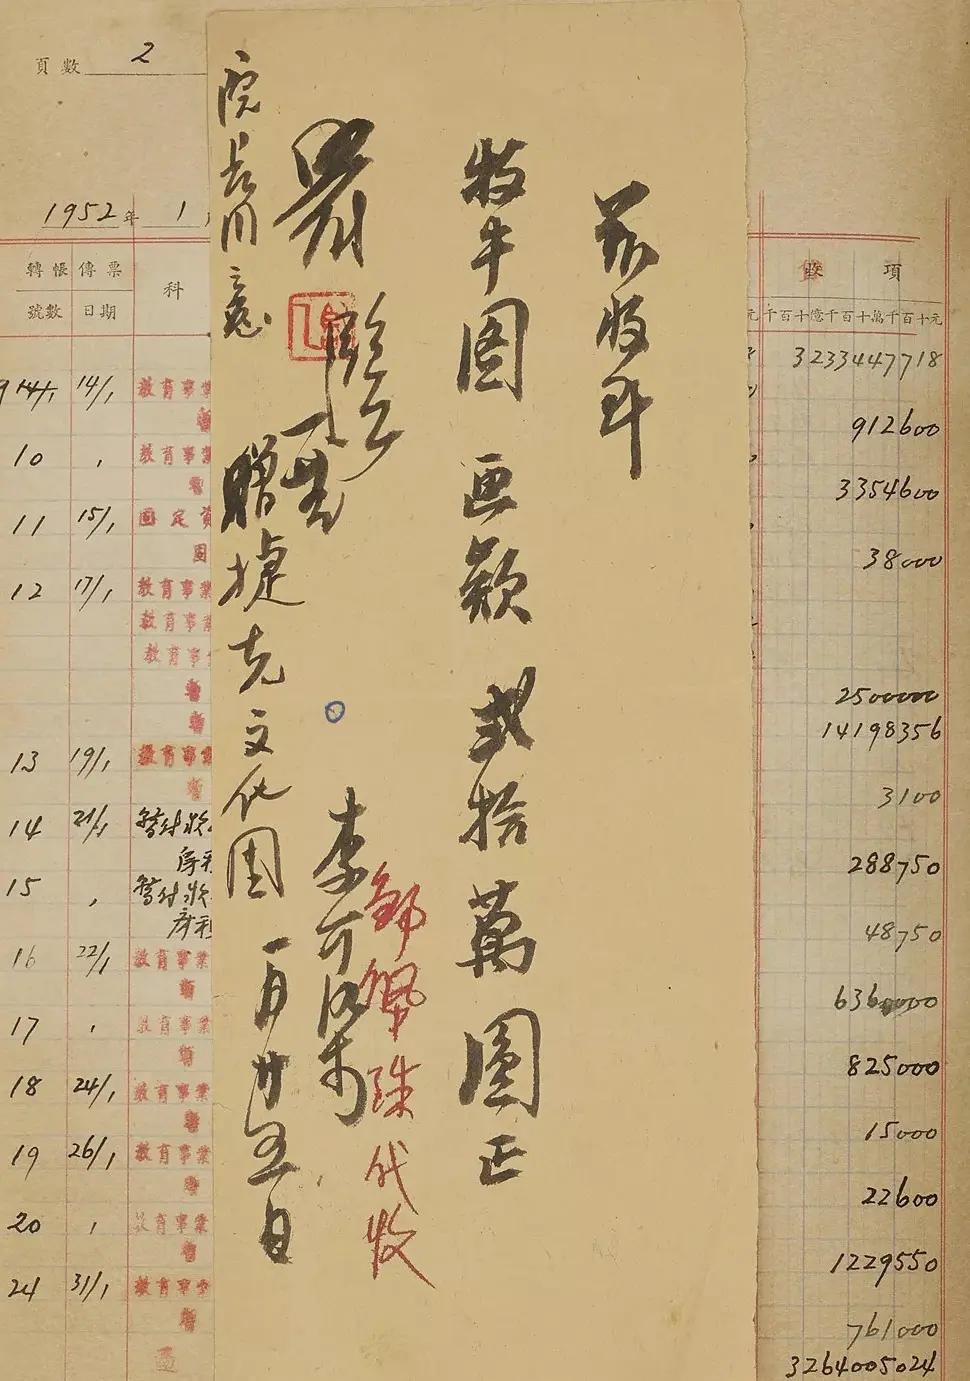 頁數 2
1952年 1
轉帳傳票
號數 日期
科
14/1 教育事業
10 教育事業
11 15/1 固定資
12 17/1 教育事業
教育事業
教育事
13 19/1 教育事業
14 21/1 暫付款
15 暫付款
16 22/1 教育事業
17 教育事業
18 24/1 教育事業
19 26/1 教育事業
20 教育事業
24 31/1 教育事业
茲收到
牧牛图画款弍拾萬圓正
李可染
鄒佩珠代收
院長用意
贈捷克文化團
一月廿五日
收項
元千百十億千百十萬千百十元
3233447718
912600
3354600
38000
2500000
14198356
3100
288750
48750
636000
825000
15000
22600
1229550
761000
3264005024